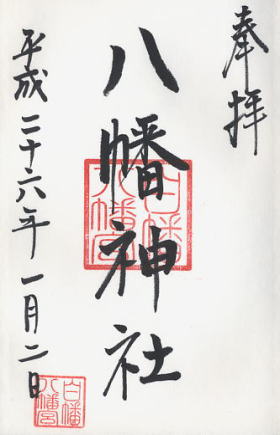 奉拝
八幡神社
白幡八幡宮
平成二十六年一月二日
白幡八幡宮